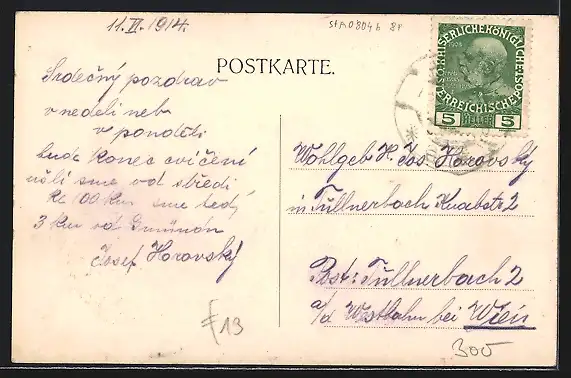 11. VI. 1914.
StA08046 8P
POSTKARTE.
KAISERLICHE KÖNIGLICHE
ÖSTERREICHISCHE POST
1908
5 HELLER 5
Srdečný pozdrav
v nedeli neb
v ponděli
bude Konec cvičení
ušli sme od středi
ke 100 km sme tedý
3 km od Gmünón
Josef Horovský
Wohlgeb H. Jos. Horovský
in Tullnerbach Knabstr 2
Post: Tullnerbach 2
a/d Westbahn bei Wien
£13
300